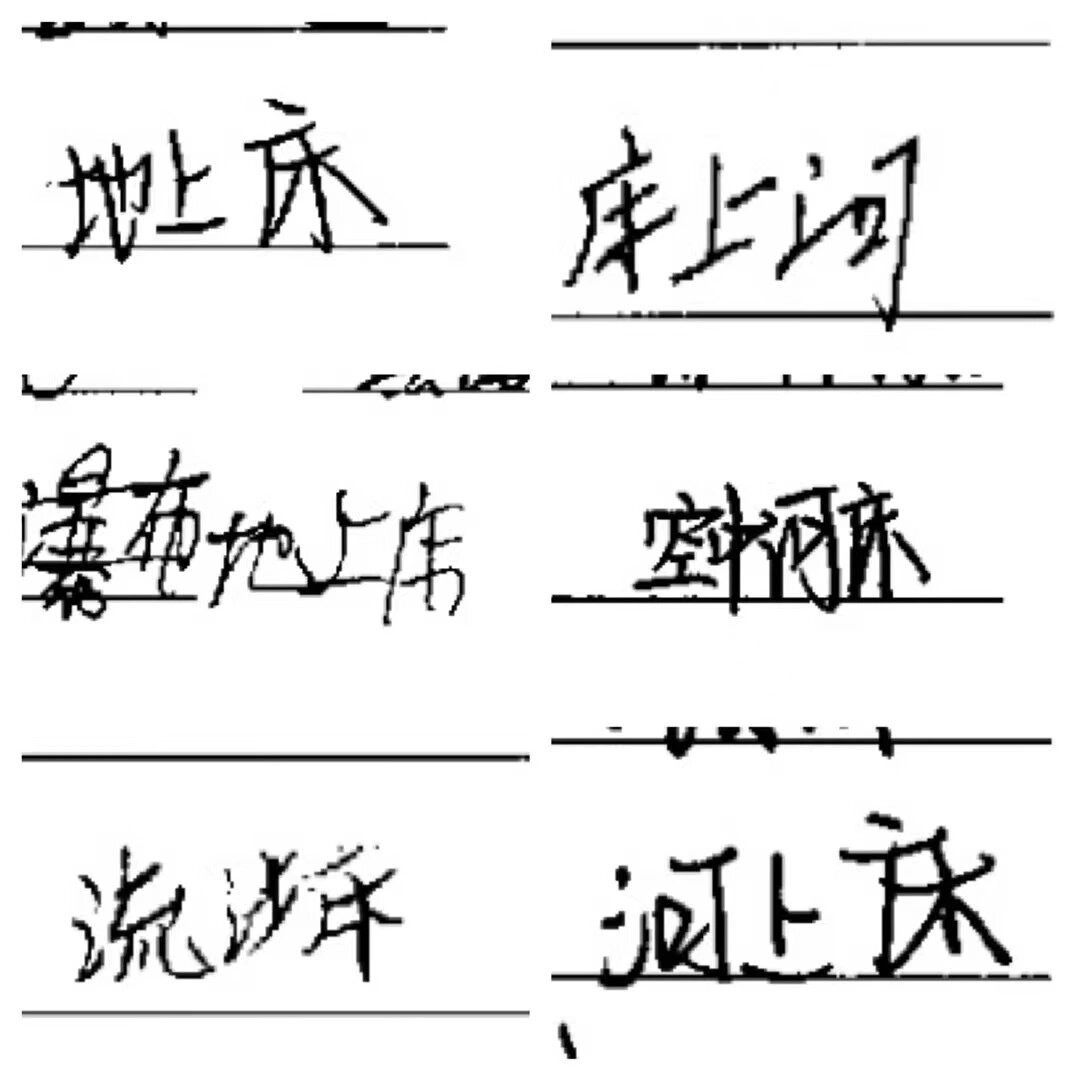 地上床
床上河
瀑布地上床
空中河床
流沙床
河上床